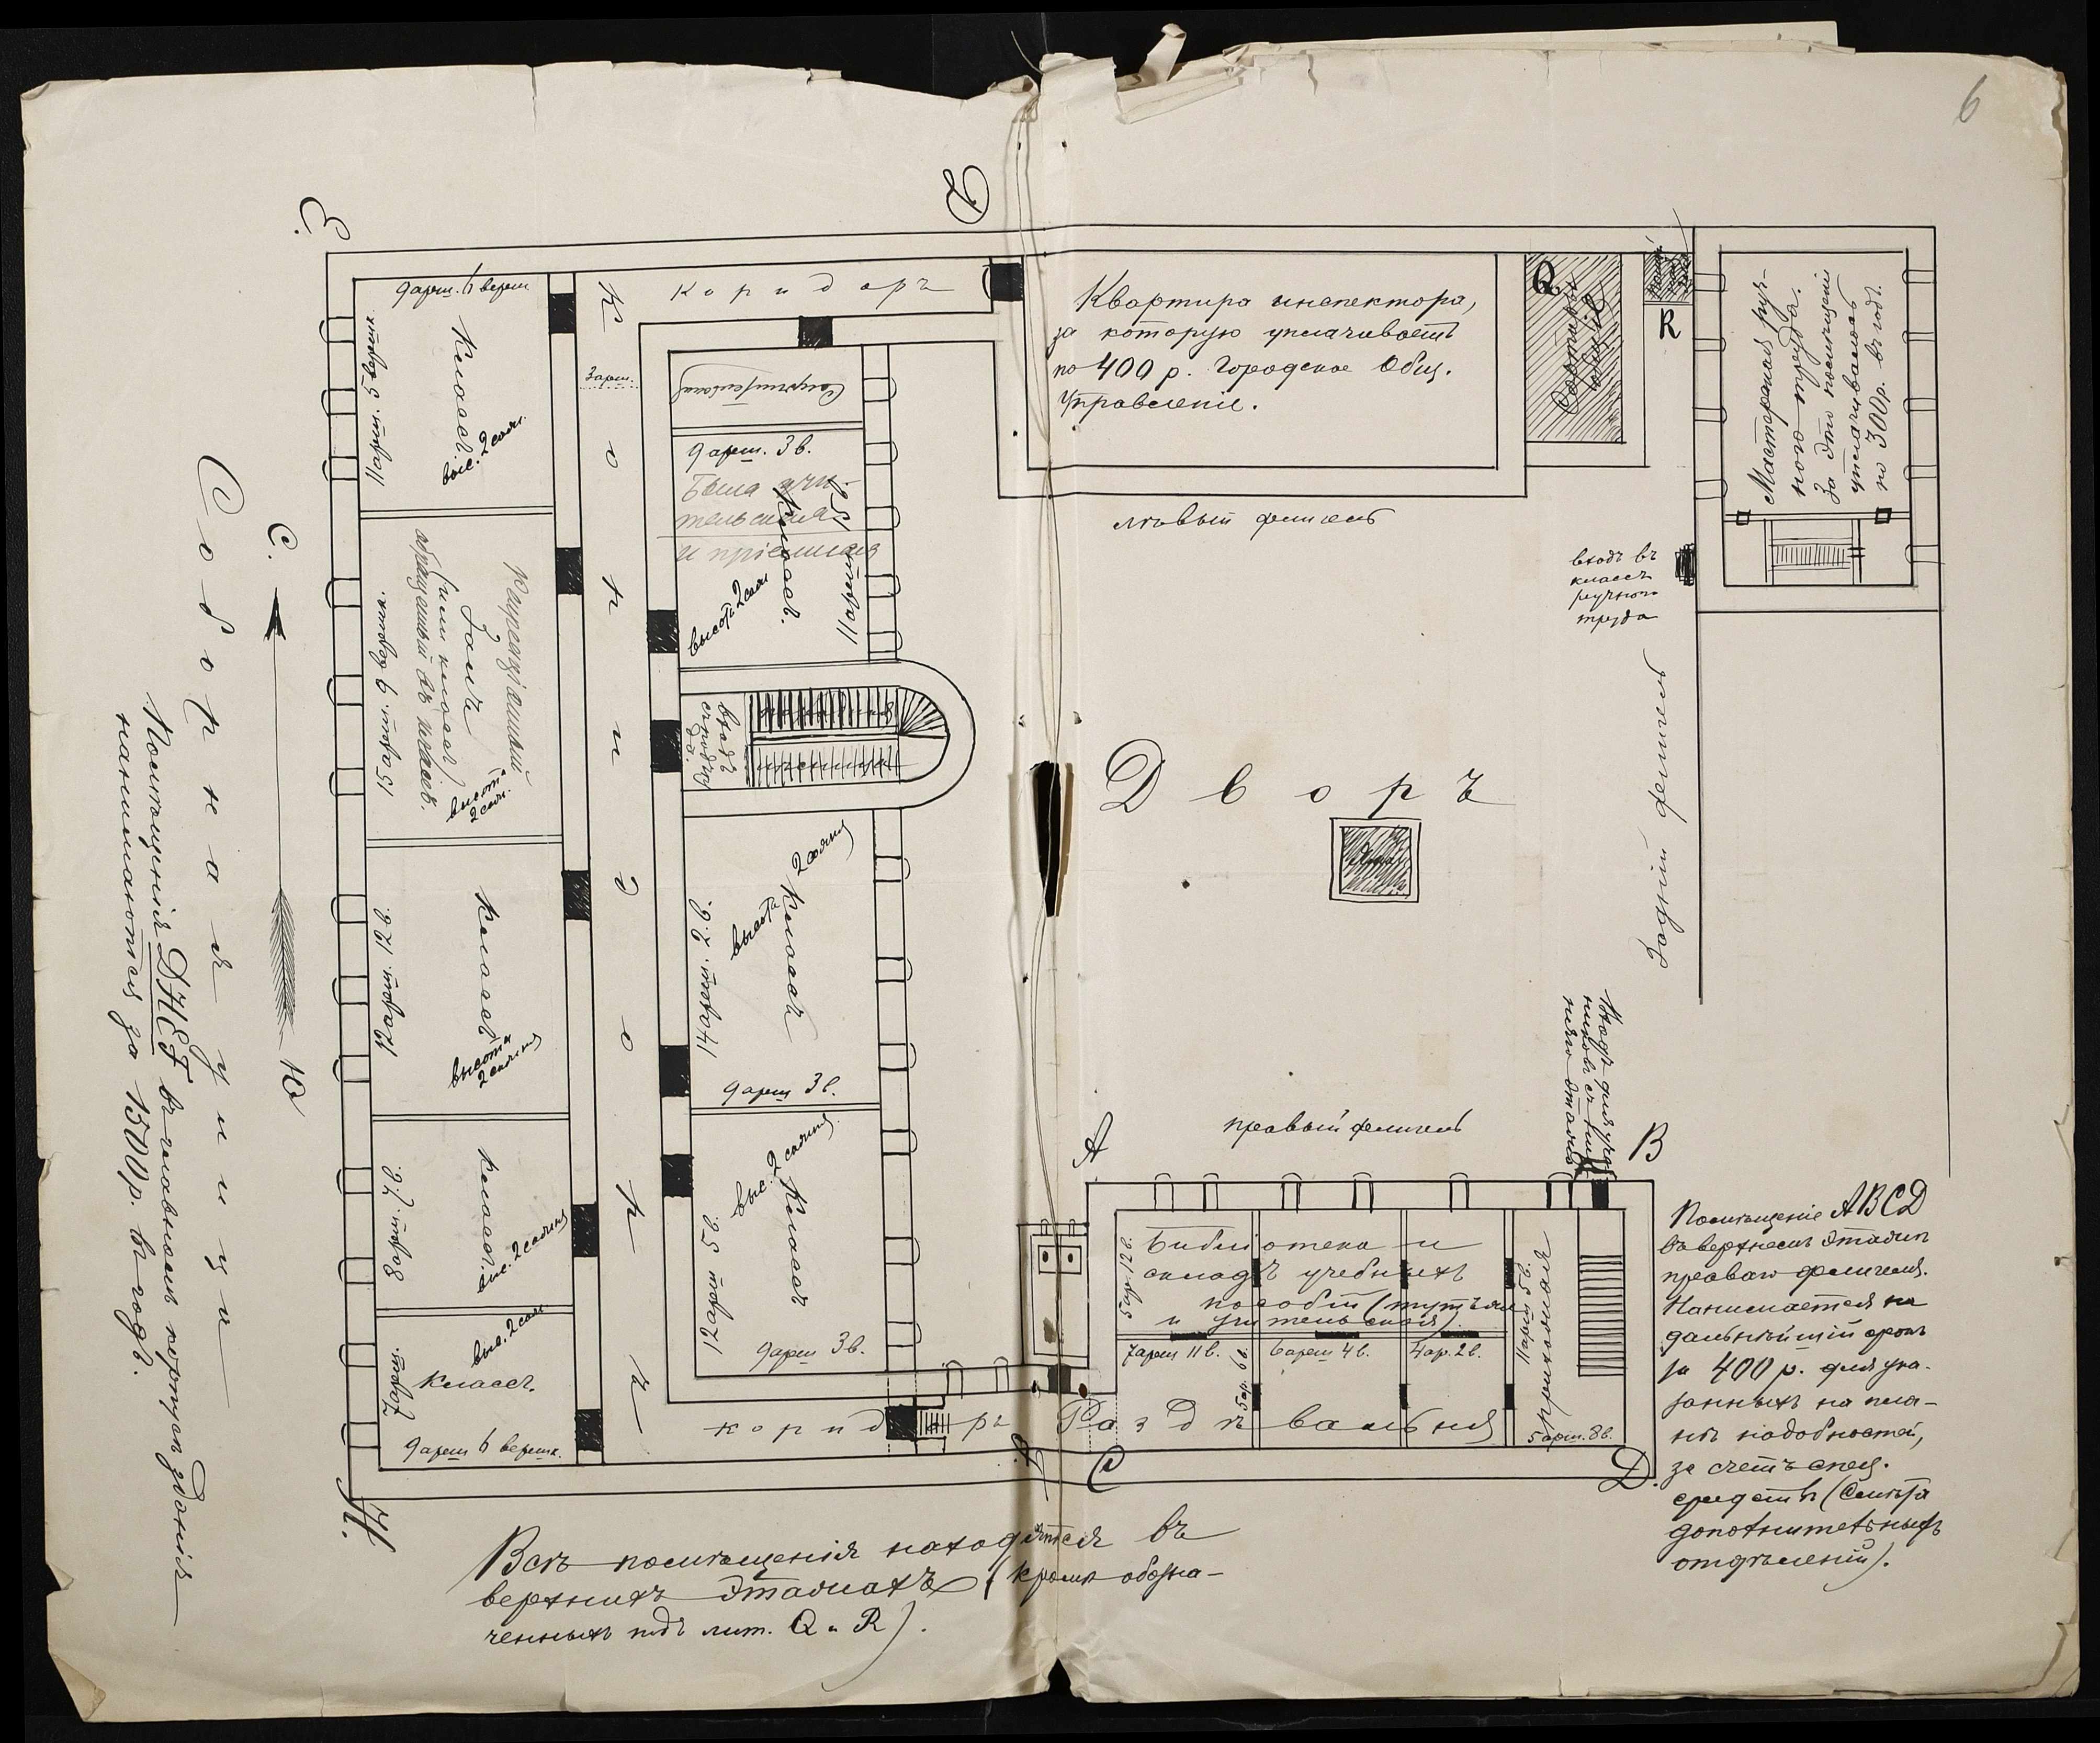 6
Е.
Д
коридоръ
9 арш. 6 вершк
11 арш. 5 вершк.
Классъ.
выс. 2 саж.
Рекреаціонный
Залъ
(или классъ)
обращенный въ классъ.
15 арш. 9 вершк.
высота
2 саж.
Классъ
12 арш. 12 в.
высота
2 сажня
Классъ
8 арш. 7 в.
выс. 2 сажня
Классъ.
7 арш.
выс. 2 саж
9 арш 6 вершк.
Коридоръ
3 арш.
9 арш. 3 в.
Была учи-
тельская
и пріемная
Классъ.
высота 2 саж
11 арш
входъ
парадная
лѣстница
14 арш. 2. в.
высота 2 сажня
Классъ
9 арш 3 в.
12 арш 5 в.
выс. 2 сажня
Классъ
9 арш 3 в.
коридоръ
Квартира инспектора,
за которую уплачиваетъ
по 400 р. Городское Общ.
Управленіе.
Q
R
Мастерская руч-
ного труда.
За это помещеніе
уплачивалось
по 300 р. въ годъ.
лѣвый флигель
входъ въ
классъ
ручного
труда
Задній флигель
Дворъ
правый флигель
А
В
С
D.
Библіотека и
складъ учебныхъ
пособій (тутъ же
и учительская).
5 ар. 12 в.
7 арш 11 в.
6 арш 4 в.
4 ар. 2 в.
5 ар. 6 в.
11 арш 5 в.
прихожая
5 арш. 8 в.
Раздѣвальня
Помѣщеніе ABCD
въ верхнемъ этажѣ
праваго флигеля.
Нанимается на
дальнѣйшій срокъ
за 400 р. для ука-
занныхъ на пла-
нѣ надобностей,
за счетъ спец.
средствъ (Смѣта
дополнительныхъ
отдѣленій).
С.
Ю
Соборная улица
Помѣщенія ДНЕF въ главномъ корпусѣ зданія
нанимаются за 1500 р. въ годъ.
Н.
Всѣ помѣщенія находятся въ
верхнихъ этажахъ (кромѣ обозна-
ченныхъ подъ лит. Q и R).